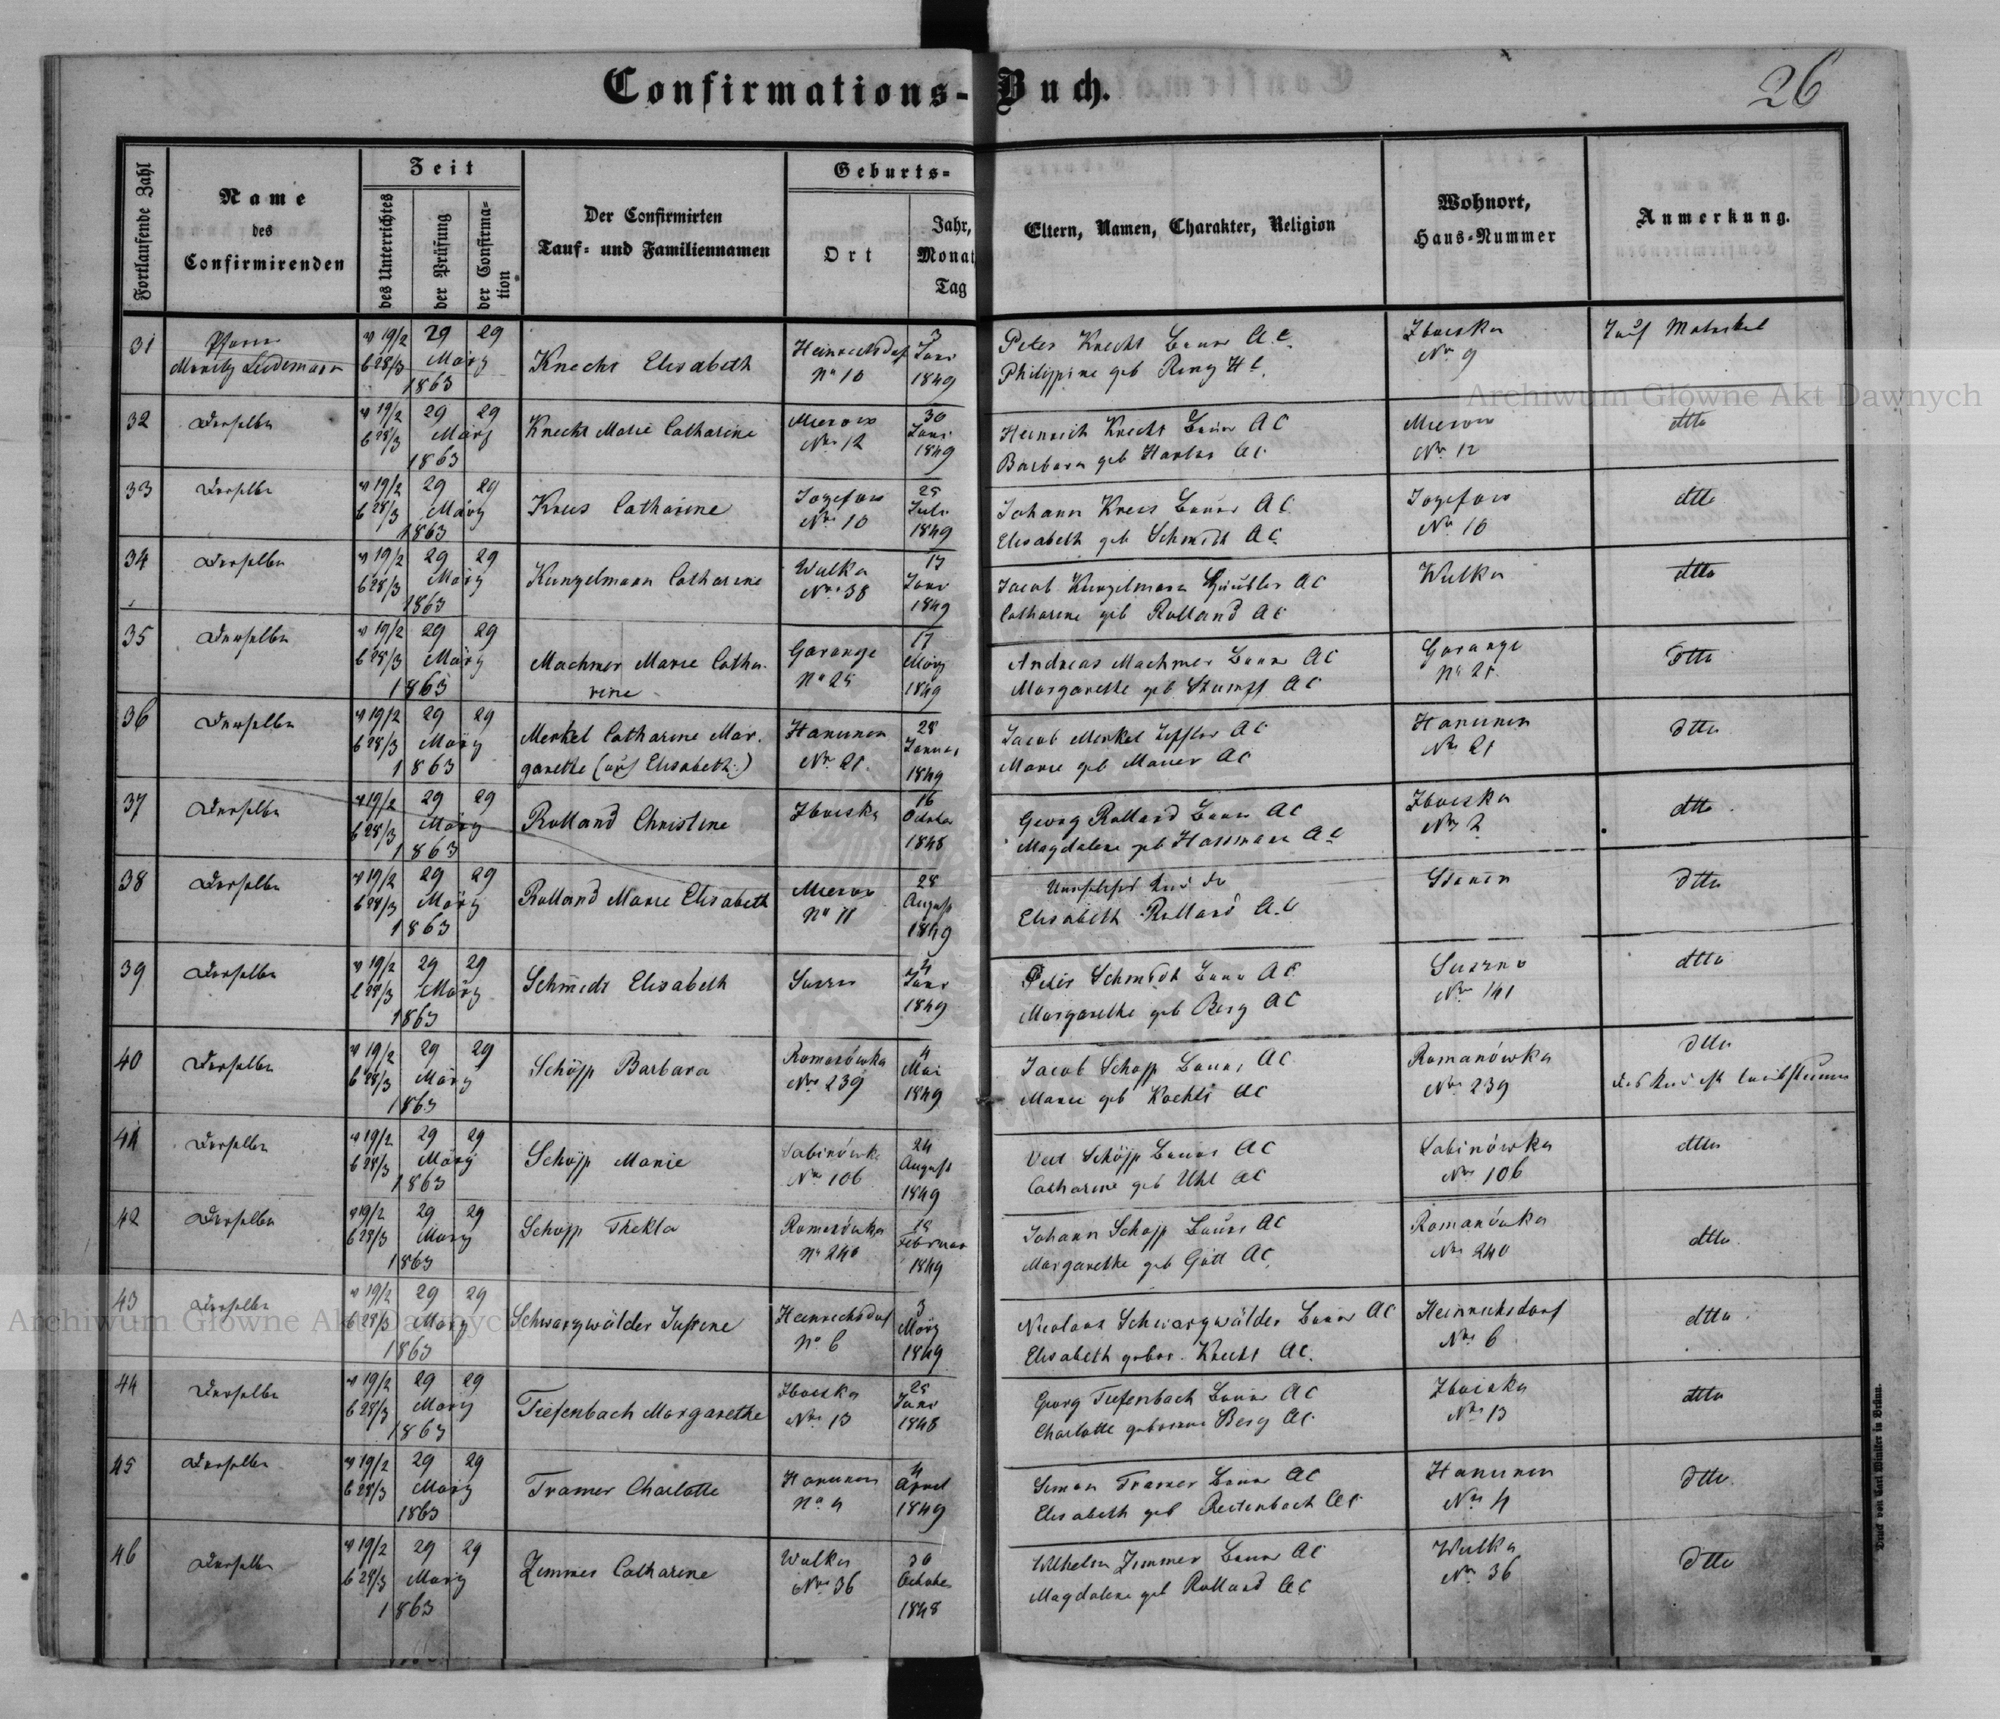 Confirmations-Buch.
26
Fortlaufende Zahl
Name
des
Confirmirenden
Zeit
des Unterrichtes
der Prüfung
der Confirma-
tion
Der Confirmirten
Tauf- und Familiennamen
Geburts-
Ort
Jahr,
Monat
Tag
Eltern, Namen, Charakter, Religion
Wohnort,
Haus-Nummer
Anmerkung.
31 Pfarrer 19/2 29 29 Knecht Elisabeth Heinrichsdorf 3 Peter Knecht Bauer A.C. Zboiska
Moritz 28/3 März No 10 Janr Philippine geb Ring H C. No 9
1863 1849
32 Derselbe 19/2 29 29 Knecht Marie Catharine Mierow 30 Heinrich Knecht Bauer AC Mierow dtto
28/3 März No 12 Janr Barbara geb AC No 12
1863 1849
33 Derselbe 19/2 29 29 Kreis Catharine Jozefow 25 Johann Kreis Bauer AC Jozefow dtto
28/3 März No 10 Juli Elisabeth geb Schmidt AC No 10
1863 1849
34 Derselbe 19/2 29 29 Kunzelmann Catharine Wulka 17 Jacob Kunzelmann AC Wulka dtto
28/3 März No 38 Janr Catharine geb Rolland AC
1863 1849
35 Derselbe 19/2 29 29 Machmer Marie Catha- Garange 17 Andreas Machmer Bauer AC Garange dtto
28/3 März rine No 25 März Margarethe geb Stumpf AC No 25
1863 1849
36 Derselbe 19/2 29 29 Merkel Catharine Mar- Hanunin 28 Jacob Merkel AC Hanunin dtto
28/3 März garethe (auf Elisabeth) No 21 Januar Marie geb Mauer AC No 21
1863 1849
37 Derselbe 19/2 29 29 Rolland Christine Zboiska 16 Georg Rolland Bauer AC Zboiska dtto
28/3 März October Magdalene geb Hassmann AC No 2
1863 1848
38 Derselbe 19/2 29 29 Rolland Marie Elisabeth Mierow 28 dtto
28/3 März No 11 August Elisabeth Rolland A.C
1863 1849
39 Derselbe 19/2 29 29 Schmidt Elisabeth Suszno 4 Peter Schmidt Bauer AC Suszno dtto
28/3 März Janr Margarethe geb Berg AC No 141
1863 1849
40 Derselbe 19/2 29 29 Schöpp Barbara Romanówka 4 Jacob Schopp Bauer AC Romanówka dtto
28/3 März No 239 Mai Marie geb AC No 239 das Kind ist taubstumm
1863 1849
41 Derselbe 19/2 29 29 Schöpp Marie Sabinówka 24 Veit Schöpp Bauer AC Sabinówka dtto
28/3 März No 106 August Catharine geb Uhl AC No 106
1863 1849
42 Derselbe 19/2 29 29 Schopp Thekla Romanówka 18 Johann Schopp Bauer AC Romanówka dtto
28/3 März No 240 Februar Margarethe geb Gött AC No 240
1863 1849
43 Derselbe 19/2 29 29 Schwarzwälder Justine Heinrichsdorf 3 Nicolaus Schwarzwälder Bauer AC Heinrichsdorf dtto
28/3 März No 6 März Elisabeth gebor. Knecht AC. No 6
1863 1849
44 Derselbe 19/2 29 29 Tiefenbach Margarethe Zboiska 25 Georg Tiefenbach Bauer AC Zboiska dtto
28/3 März No 13 Janr Charlotte geborene Berg AC No 13
1863 1848
45 Derselbe 19/2 29 29 Tramer Charlotte Hanunin 4 Simon Tramer Bauer AC Hanunin dtto
28/3 März No 4 April Elisabeth geb Reitenbach AC No 4
1863 1849
46 Derselbe 19/2 29 29 Zimmer Catharine Wulka 30 Wilhelm Zimmer Bauer AC Wulka dtto
28/3 März No 36 October Magdalene geb Rolland AC No 36
1863 1848
Druck von Carl Winiker in Brünn.
Archiwum Główne Akt Dawnych
Archiwum Główne Akt Dawnych